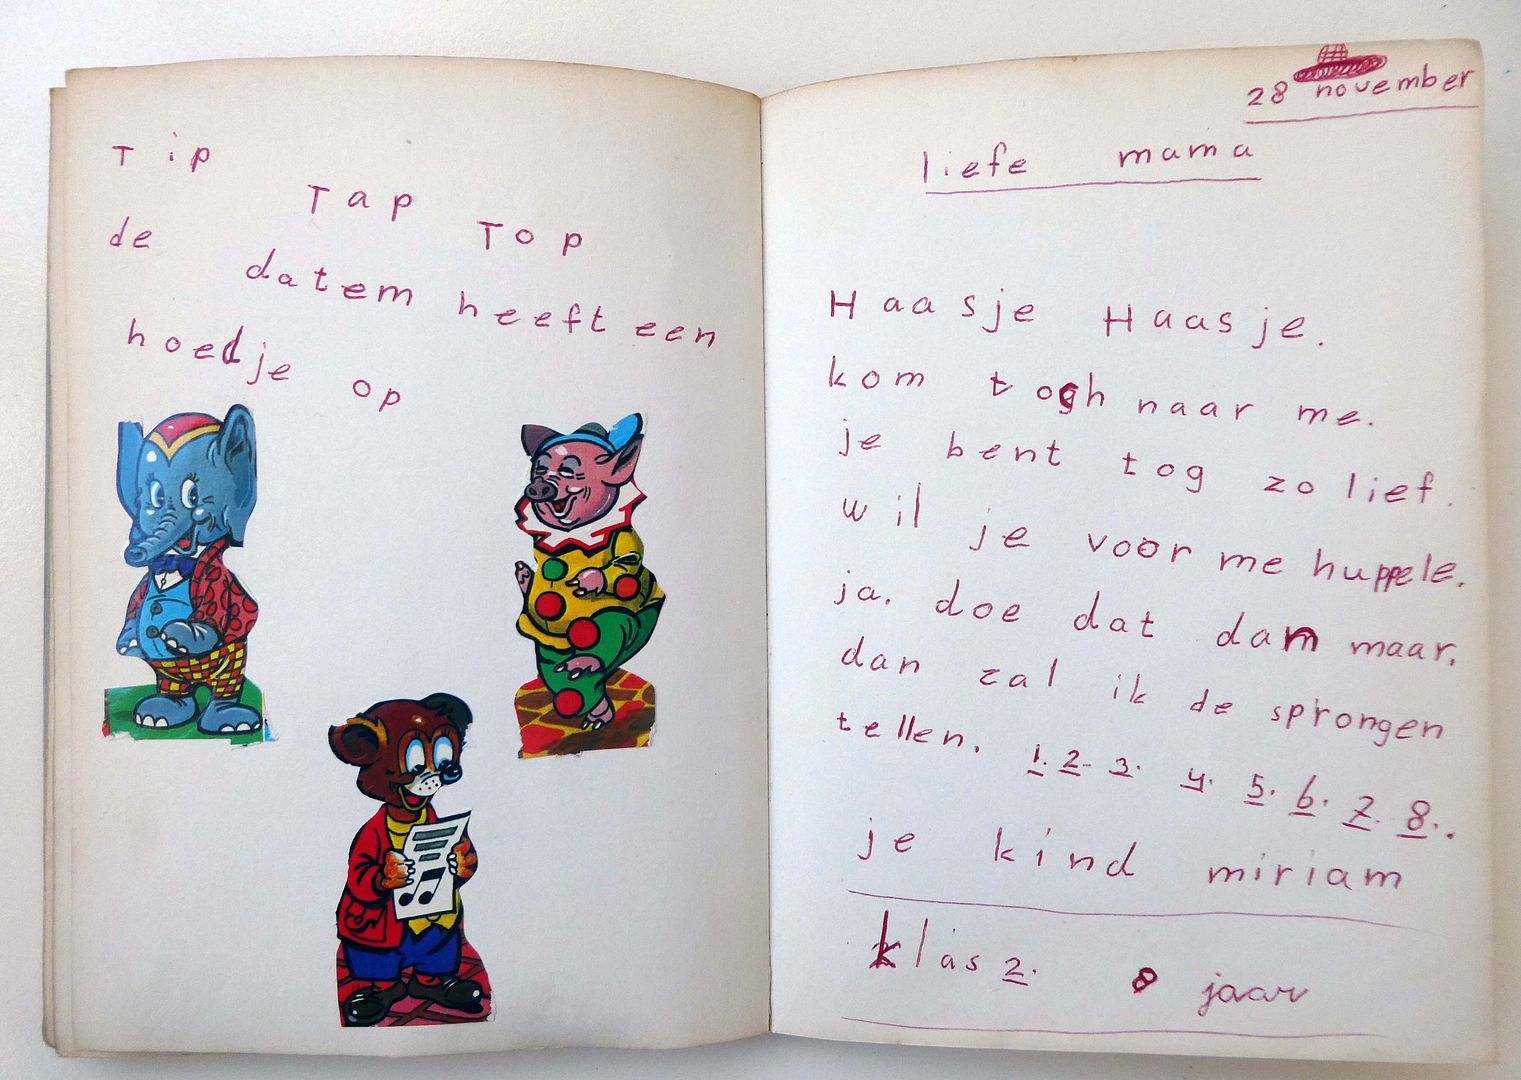 Tip
Tap
Top
de datem heeft een
hoedje op
28 november
liefe mama
Haasje Haasje.
kom togh naar me.
je bent tog zo lief.
wil je voor me huppele.
ja. doe dat dan maar.
dan zal ik de sprongen
tellen. 1. 2. 3. 4. 5. 6. 7. 8..
je kind miriam
klas 2. 8 jaar